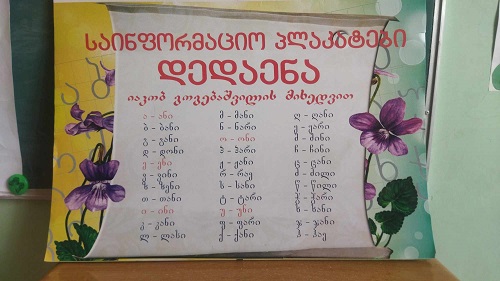 საინფორმაციო პლაკატები
დედაენა
იაკობ გოგებაშვილის მიხედვით
ა - ანი
ბ - ბანი
გ - განი
დ - დონი
ე - ენი
ვ - ვინი
ზ - ზენი
თ - თანი
ი - ინი
კ - კანი
ლ - ლასი
მ - მანი
ნ - ნარი
ო - ონი
პ - პარი
ჟ - ჟანი
რ - რაე
ს - სანი
ტ - ტარი
უ - უნი
ფ - ფარი
ქ - ქანი
ღ - ღანი
ყ - ყარი
შ - შინი
ჩ - ჩინი
ც - ცანი
ძ - ძილი
წ - წილი
ჭ - ჭარი
ხ - ხანი
ჯ - ჯანი
ჰ - ჰაე